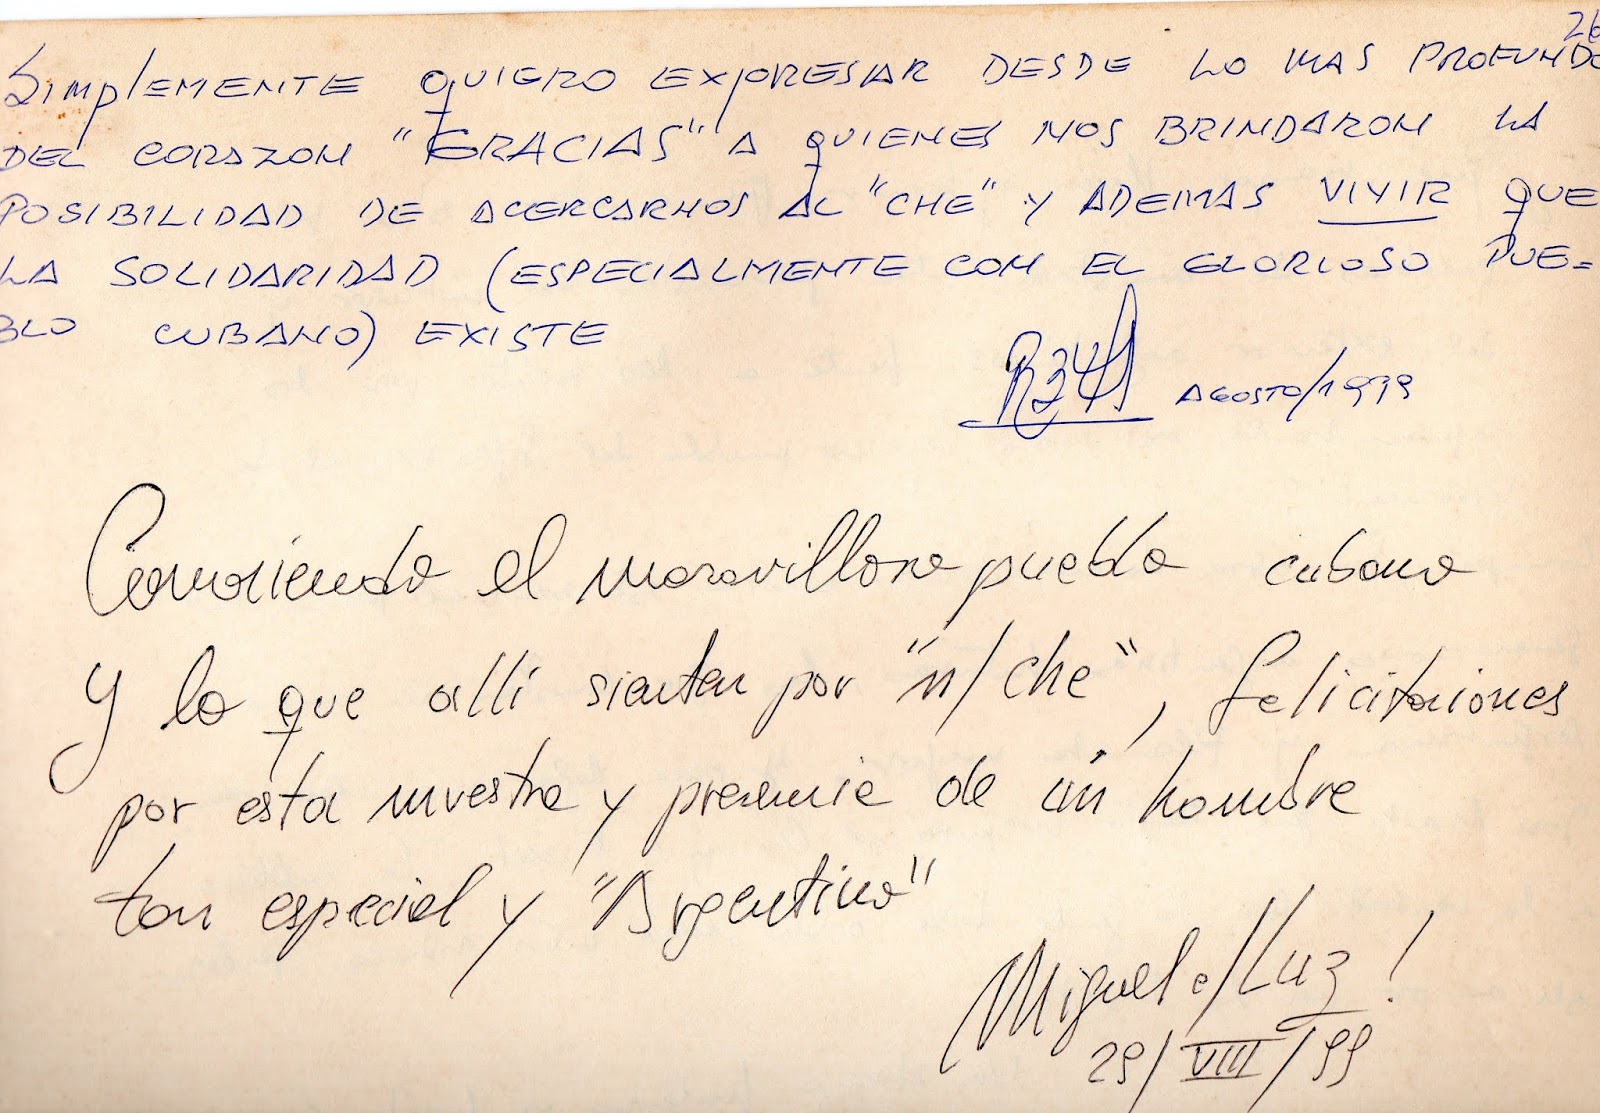 26
SIMPLEMENTE QUIERO EXPRESAR DESDE LO MAS PROFUNDO
DEL CORAZON "GRACIAS" A QUIENES NOS BRINDARON LA
POSIBILIDAD DE ACERCARNOS AL "CHE" Y ADEMAS VIVIR QUE
LA SOLIDARIDAD (ESPECIALMENTE CON EL GLORIOSO PUE=
BLO CUBANO) EXISTE
AGOSTO/1999
Conociendo el maravilloso pueblo cubano
y lo que alli sienten por "n/che", felicitaciones
por esta muestra y presencia de un hombre
tan especial y "Argentino"
Miguel e/Luz!
29/VIII/99